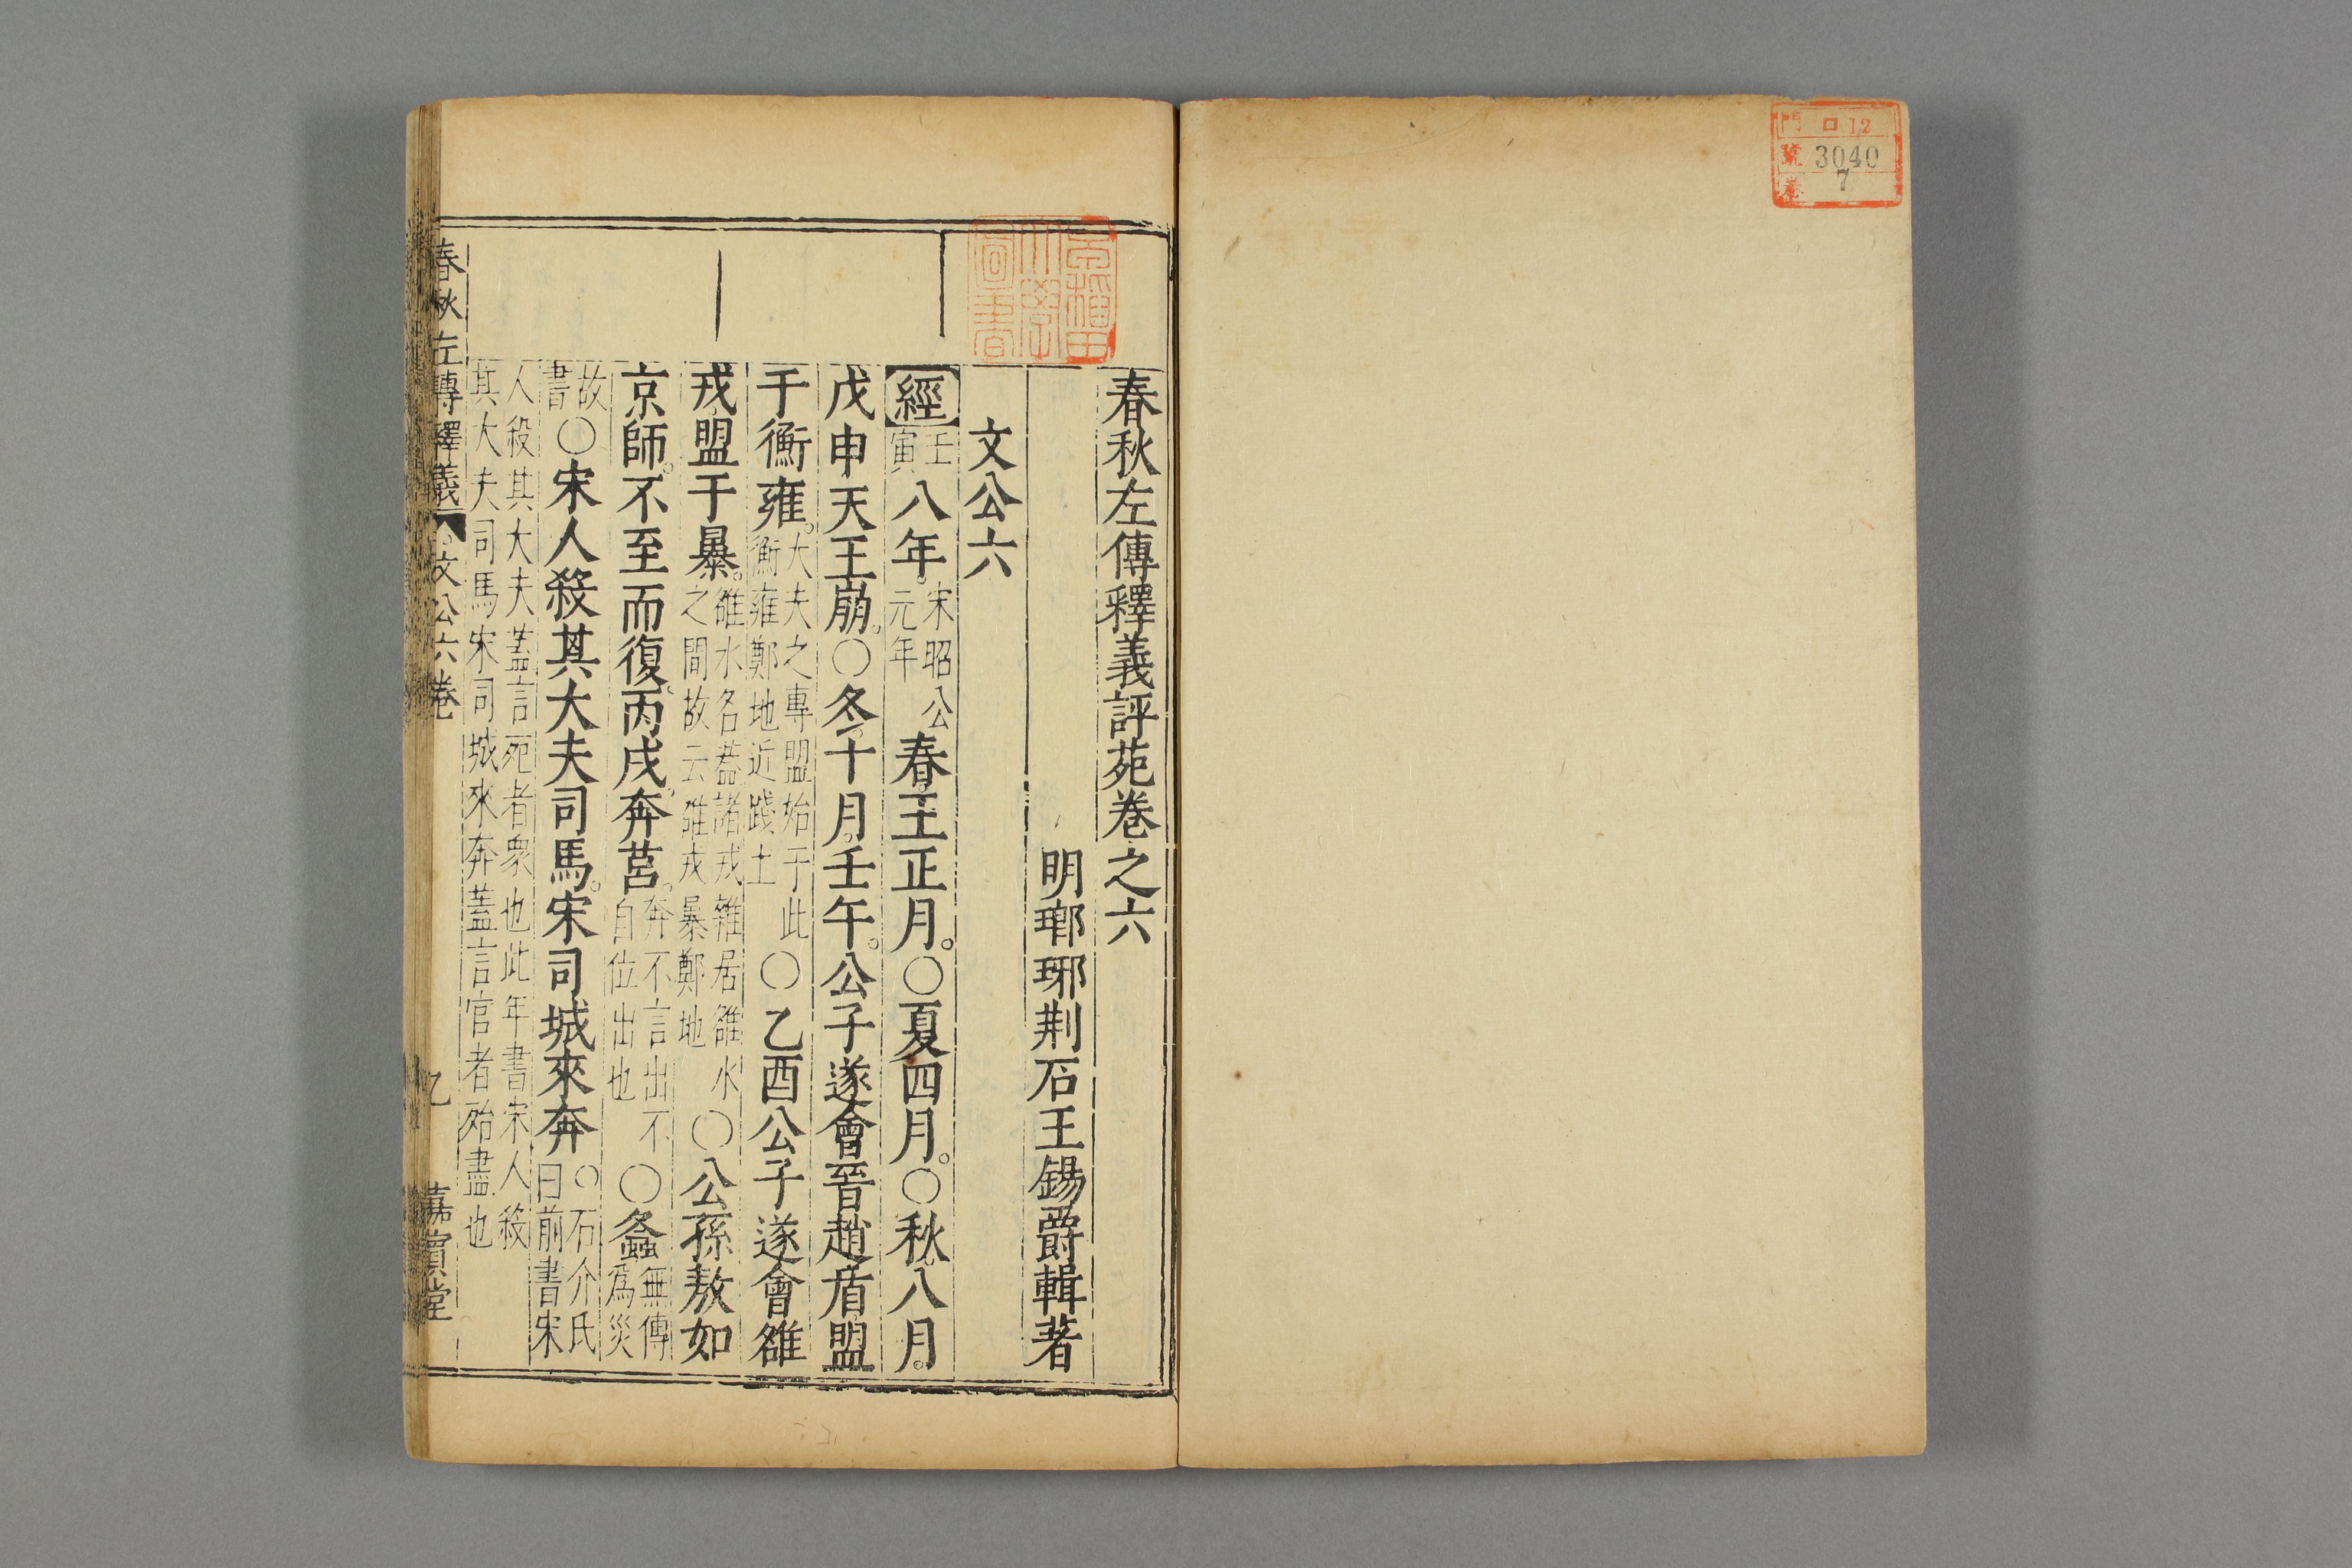 門 口12
號 3040
卷 7
早稲田大學圖書
春秋左傳釋義評苑卷之六
明瑯琊荆石王錫爵輯著
文公六
經壬寅八年宋昭公元年春王正月○夏四月○秋八月
戊申天王崩○冬十月壬午公子遂會晉趙盾盟
于衡雍大夫之專盟始于此衡雍鄭地近踐土○乙酉公子遂會雒
戎盟于暴雒水名葢諸戎雜居雒水之間故云雒戎暴鄭地○公孫敖如
京師不至而復丙戌奔莒奔不言出不自位出也○螽無傳爲災
故書○宋人殺其大夫司馬宋司城來奔○石介氏曰前書宋
人殺其大夫葢言死者衆也此年書宋人殺其大夫司馬宋司城來奔葢言官者殆盡也
春秋左傳釋義 文公六卷 乙 嘉賓堂